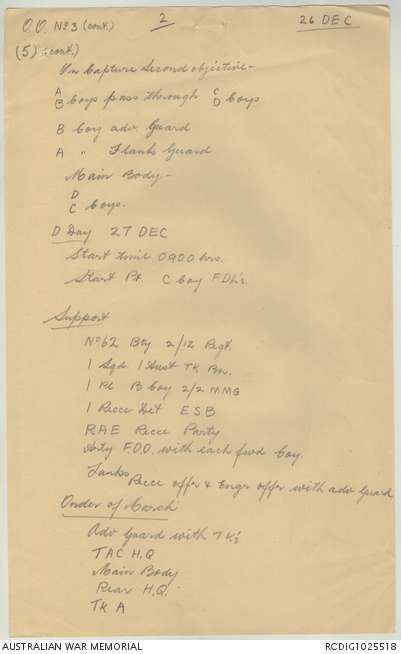 O.O. No 3 (cont.) 2 26 DEC
(5) (cont.)
On Capture Second objective -
A B Coys pass through C D Coys
B Coy adv Guard
A " Flank Guard
Main Body -
D
C Coys.
D Day 27 DEC
Start time 0900 hrs.
Start Pt. C Coy FDL's.
Support
No 62 Bty 2/12 Regt.
1 Sqd 1 Aust TK Bn.
1 Pl B Coy 2/2 MMG
1 Recce Det ESB
RAE Recce Party
Arty F.O.O. with each fwd Coy.
Tanks
Recce offr & Engr offr with adv Guard
Order of March
Adv Guard with TK's
TAC H.Q
Main Body
Rear H.Q.
TK A
AUSTRALIAN WAR MEMORIAL RCDIG1025518